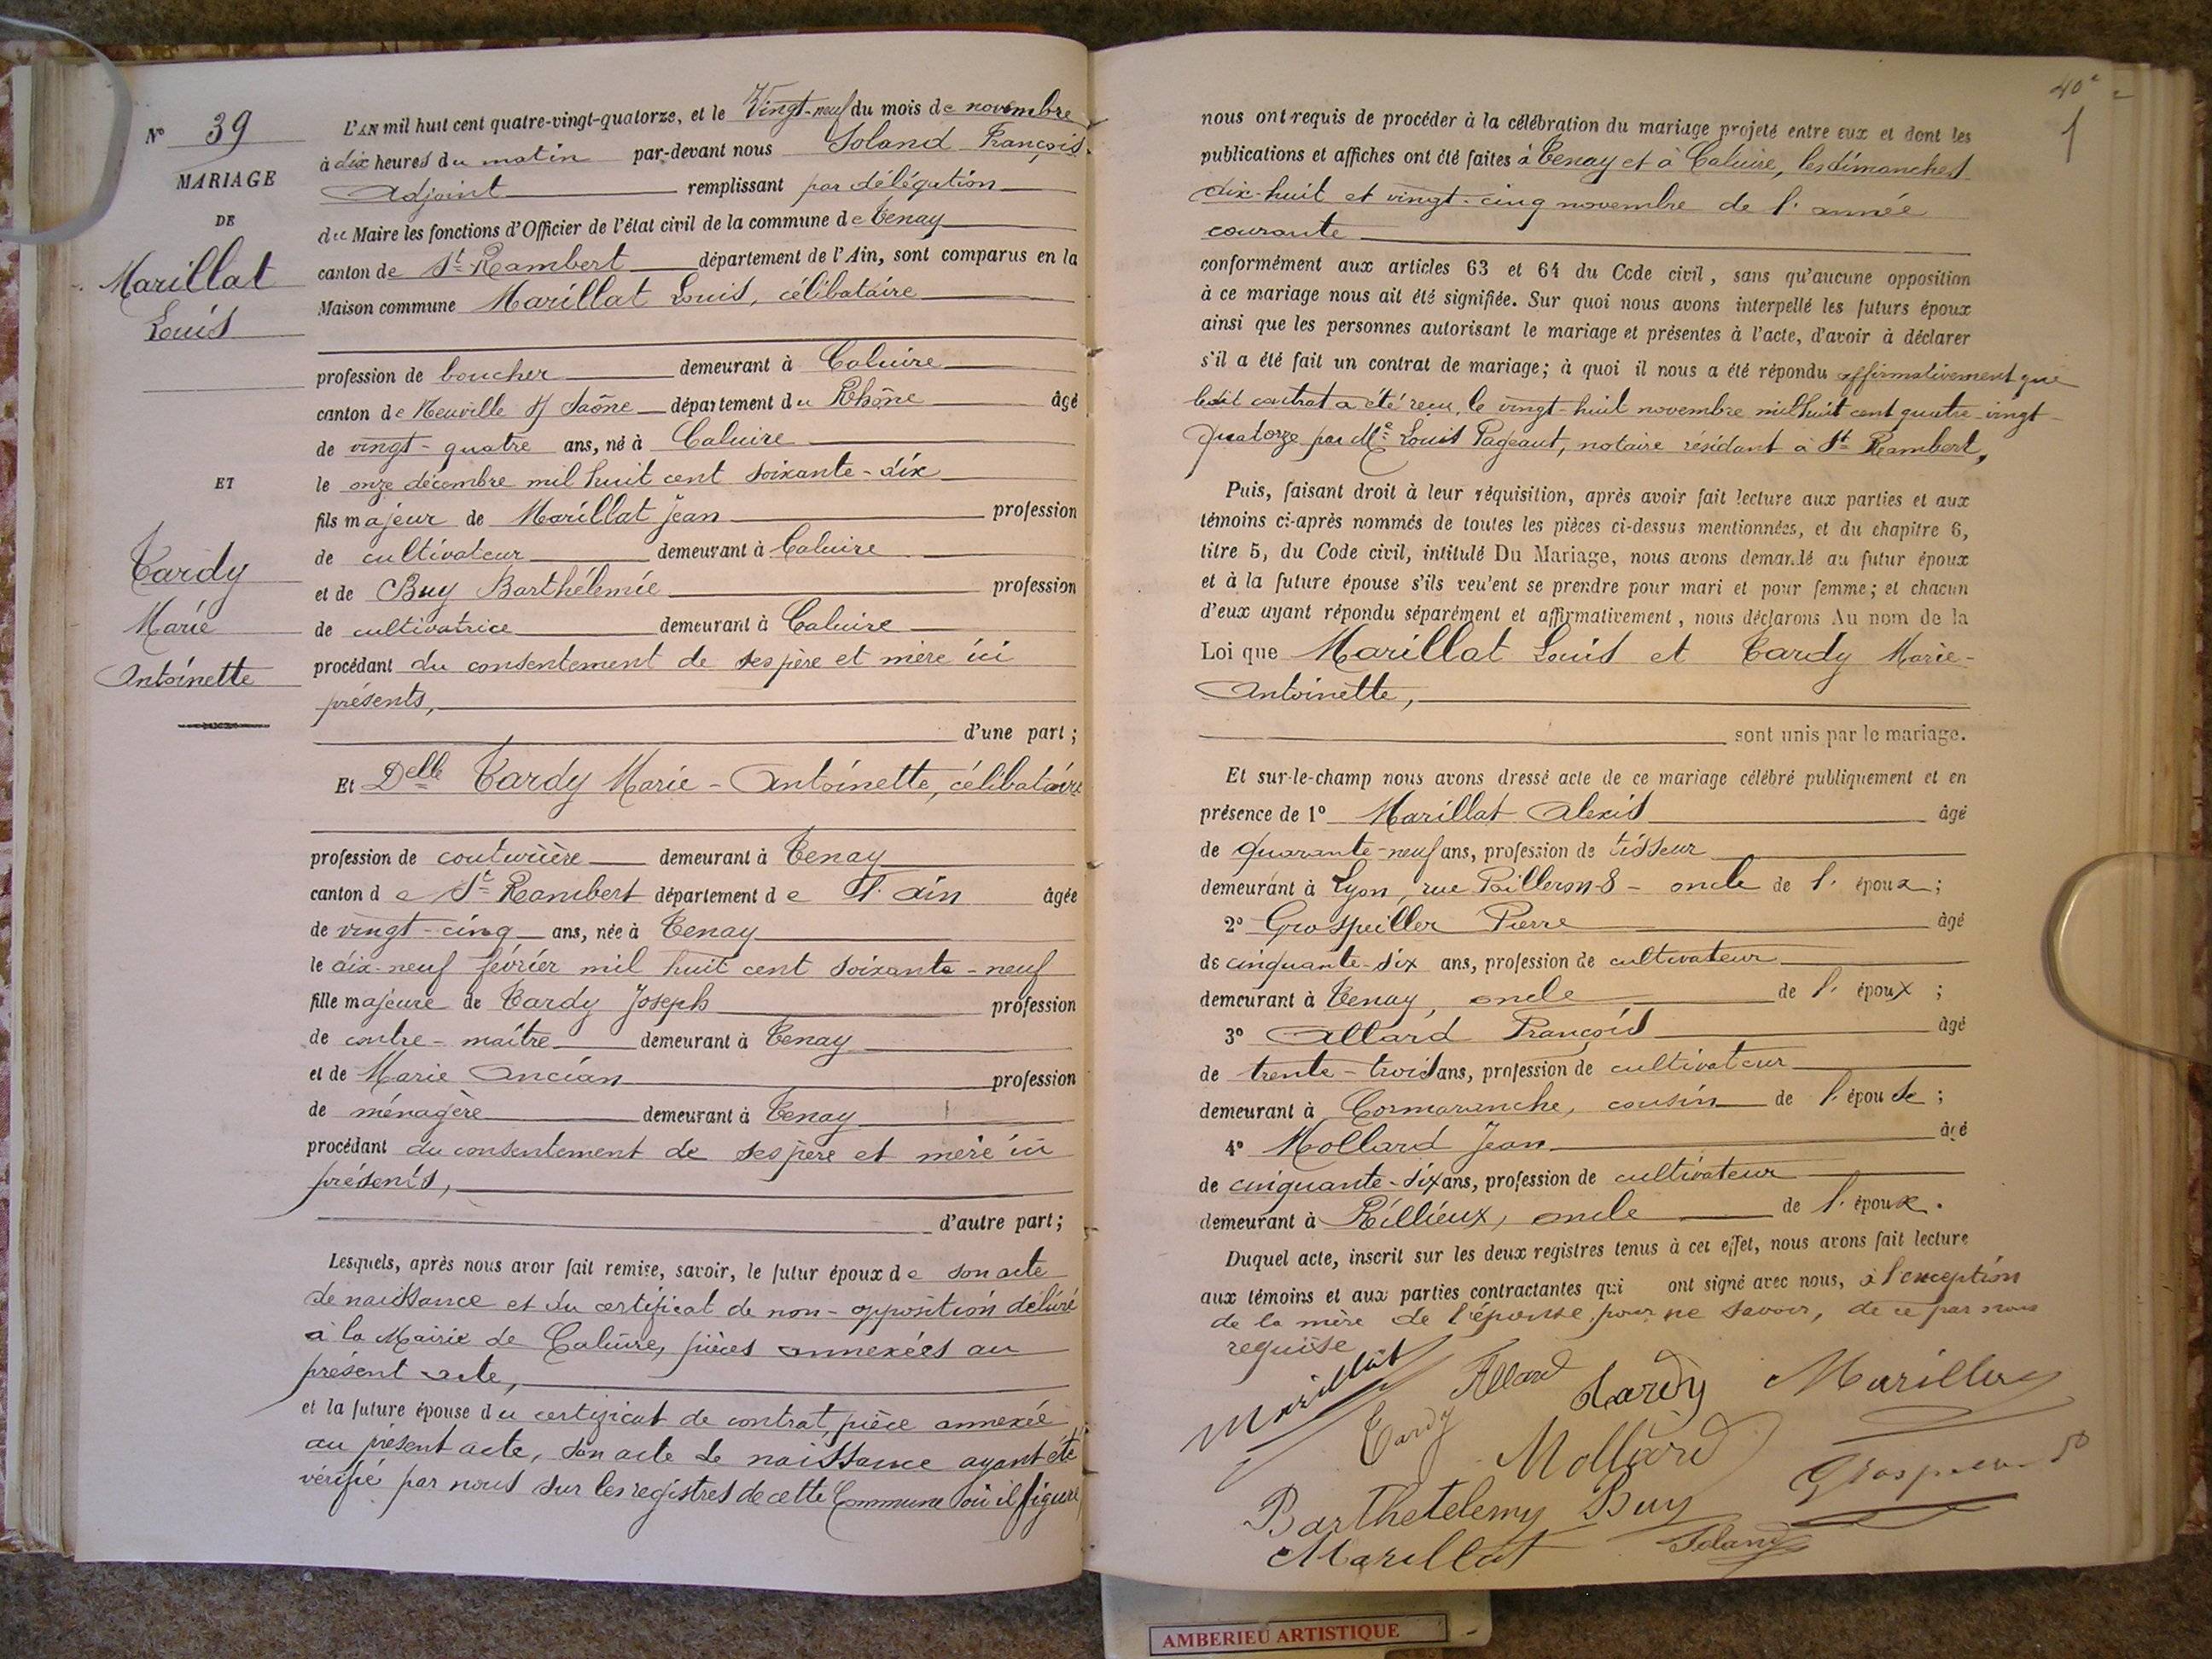 N° 39
MARIAGE
DE
Marillat
Louis
ET
Tardy
Marie
Antoinette
L'AN mil huit cent quatre-vingt-quatorze, et le Vingt-neuf du mois de novembre
à dix heures du matin par-devant nous Soland François
Adjoint remplissant par délégation
du Maire les fonctions d'Officier de l'état civil de la commune de Tenay
canton de St Rambert département de l'Ain, sont comparus en la
Maison commune Marillat Louis, célibataire
profession de boucher demeurant à Caluire
canton de Neuville s/ Saône département du Rhône âgé
de vingt-quatre ans, né à Caluire
le onze décembre mil huit cent soixante-dix
fils majeur de Marillat Jean profession
de cultivateur demeurant à Caluire
et de Buy Barthélemie profession
de cultivatrice demeurant à Caluire
procédant du consentement de ses père et mère ici
présents,
d'une part ;
Et Delle Tardy Marie-Antoinette, célibataire
profession de couturière demeurant à Tenay
canton de St Rambert département de l'Ain âgée
de vingt-cinq ans, née à Tenay
le dix-neuf février mil huit cent soixante-neuf
fille majeure de Tardy Joseph profession
de contre-maître demeurant à Tenay
et de Marie Ancian profession
de ménagère demeurant à Tenay
procédant du consentement de ses père et mère ici
présents,
d'autre part ;
Lesquels, après nous avoir fait remise, savoir, le futur époux de son acte
de naissance et du certificat de non-opposition délivré
à la Mairie de Caluire, pièces annexées au
présent acte,
et la future épouse du certificat de contrat, pièce annexée
au présent acte, son acte de naissance ayant été
vérifié par nous sur les registres de cette Commune où il figure
40e
nous ont requis de procéder à la célébration du mariage projeté entre eux et dont les
publications et affiches ont été faites à Tenay et à Caluire, les dimanches
dix-huit et vingt-cinq novembre de l'année
courante
conformément aux articles 63 et 64 du Code civil, sans qu'aucune opposition
à ce mariage nous ait été signifiée. Sur quoi nous avons interpellé les futurs époux
ainsi que les personnes autorisant le mariage et présentes à l'acte, d'avoir à déclarer
s'il a été fait un contrat de mariage; à quoi il nous a été répondu affirmativement que
ledit contrat a été reçu, le vingt-huit novembre mil huit cent quatre-vingt-
quatorze par Me Louis Pageaut, notaire résidant à St Rambert,
Puis, faisant droit à leur réquisition, après avoir fait lecture aux parties et aux
témoins ci-après nommés de toutes les pièces ci-dessus mentionnées, et du chapitre 6,
titre 5, du Code civil, intitulé Du Mariage, nous avons demandé au futur époux
et à la future épouse s'ils veulent se prendre pour mari et pour femme; et chacun
d'eux ayant répondu séparément et affirmativement, nous déclarons Au nom de la
Loi que Marillat Louis et Tardy Marie-
Antoinette,
sont unis par le mariage.
Et sur-le-champ nous avons dressé acte de ce mariage célébré publiquement et en
présence de 1° Marillat Alexis âgé
de quarante-neuf ans, profession de tisseur
demeurant à Lyon, rue Pailleron-8- oncle de l'époux ;
2° Grospeiller Pierre âgé
de cinquante-six ans, profession de cultivateur
demeurant à Tenay, oncle de l'époux ;
3° Allard François âgé
de trente-trois ans, profession de cultivateur
demeurant à Cormaranche, cousin de l'épouse ;
4° Mollard Jean âgé
de cinquante-six ans, profession de cultivateur
demeurant à Rillieux, oncle de l'époux.
Duquel acte, inscrit sur les deux registres tenus à cet effet, nous avons fait lecture
aux témoins et aux parties contractantes qui ont signé avec nous, à l'exception
de la mère de l'épouse pour ne savoir, de ce par nous
requise
Marillat Allard Tardy Marillat
Tardy Mollard
Barthetelemy Buy
Marillat Soland
AMBERIEU ARTISTIQUE